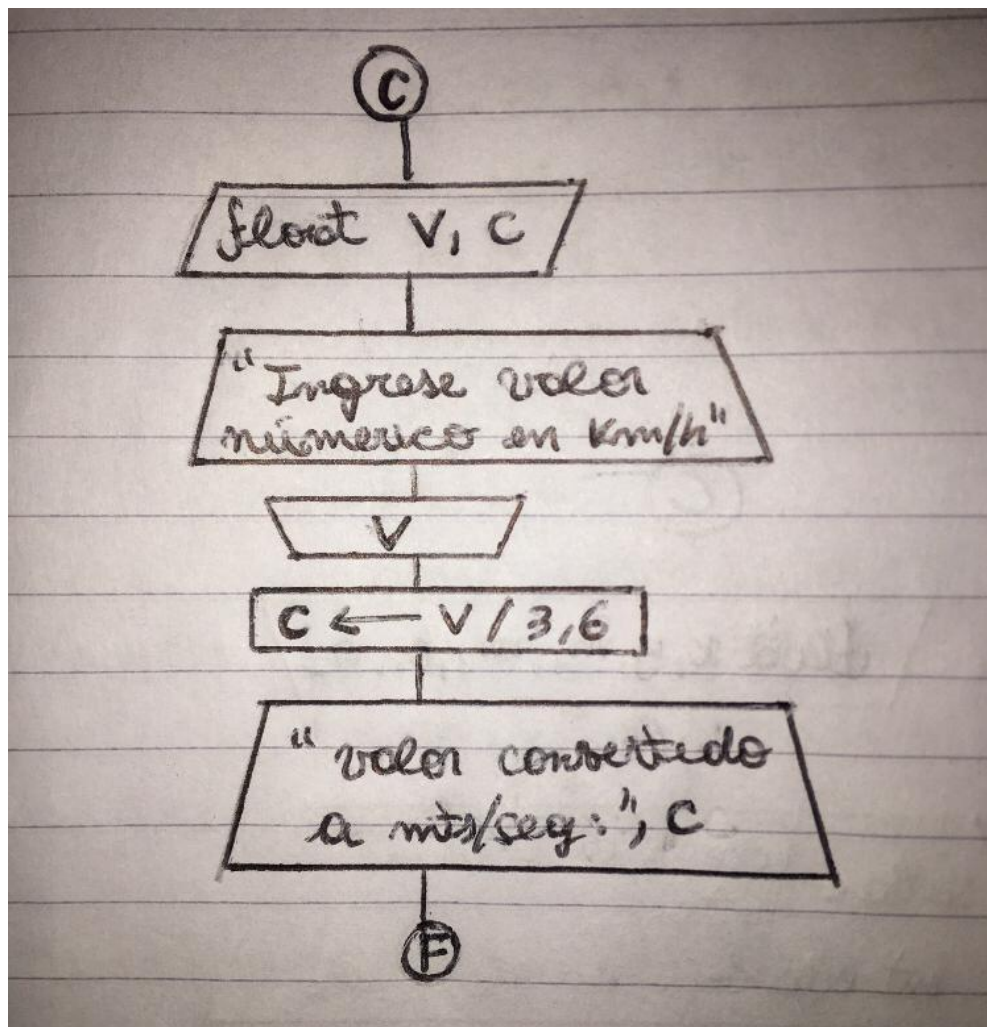 C
float V, C
"Ingrese valor
númerico en Km/h"
V
C ← V / 3,6
"valor convertido
a mts/seg:", C
F